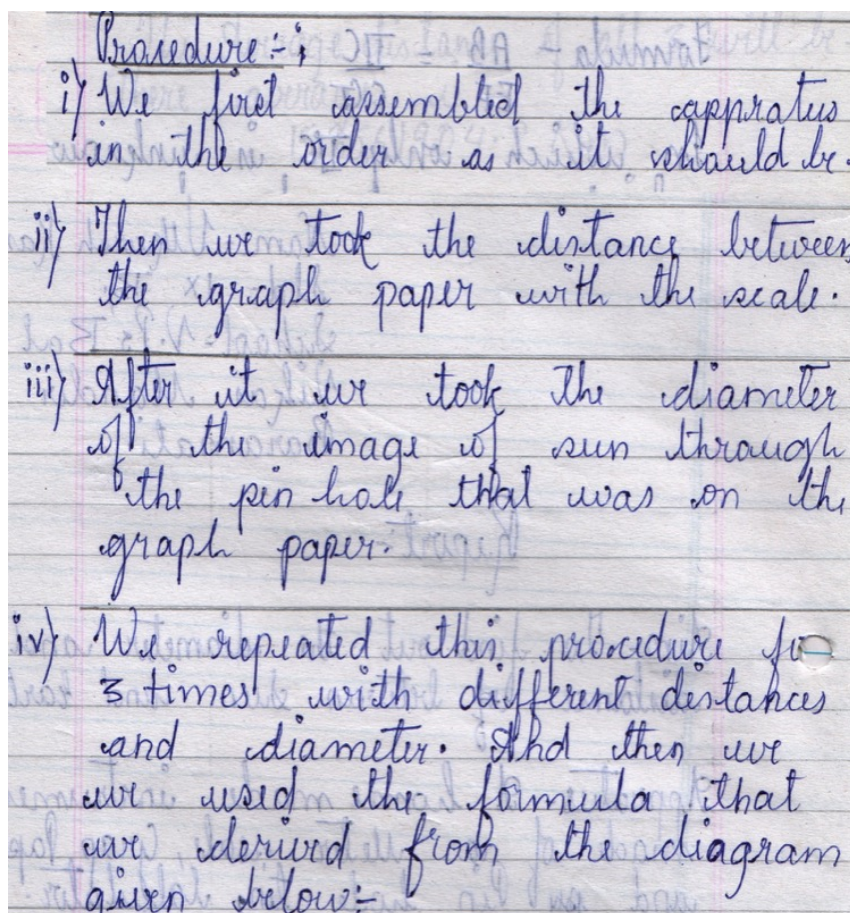 Procedure:-;
i) We first assembled the appratus
in the order as it should be.
ii) Then we took the distance between
the graph paper with the scale.
iii) After it we took the diameter
of the image of sun through
the pin hole that was on the
graph paper.
iv) We repeated this procedure fo
3 times with different distances
and diameter. And then we
we used the formula that
we derived from the diagram
given below:-